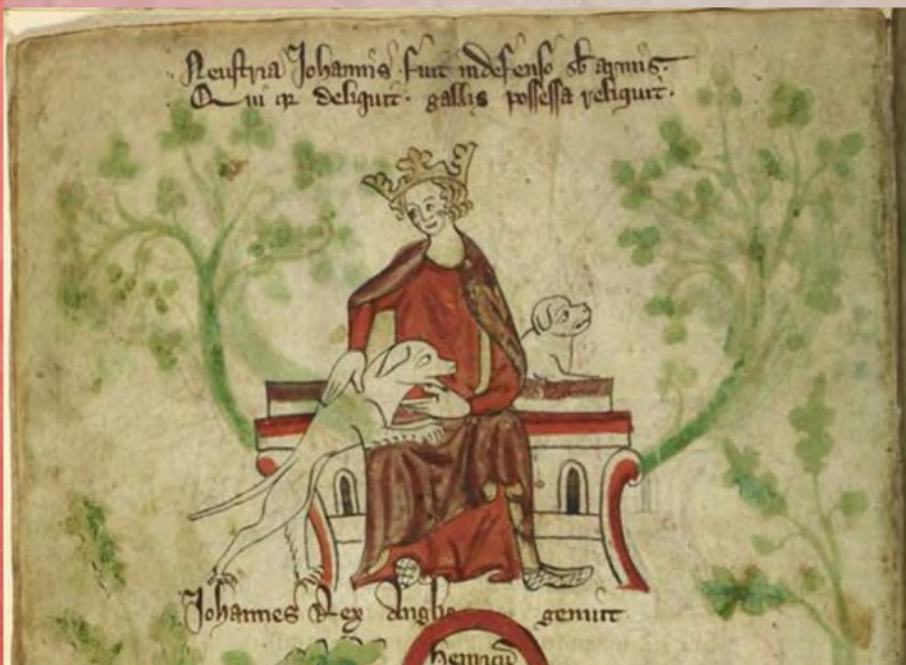 Neustria Johannis fuit indefenso sb armis.
Qui qz deliquit. gallis possessa reliquit.
Johannes Rex Anglie genuit
Henricū